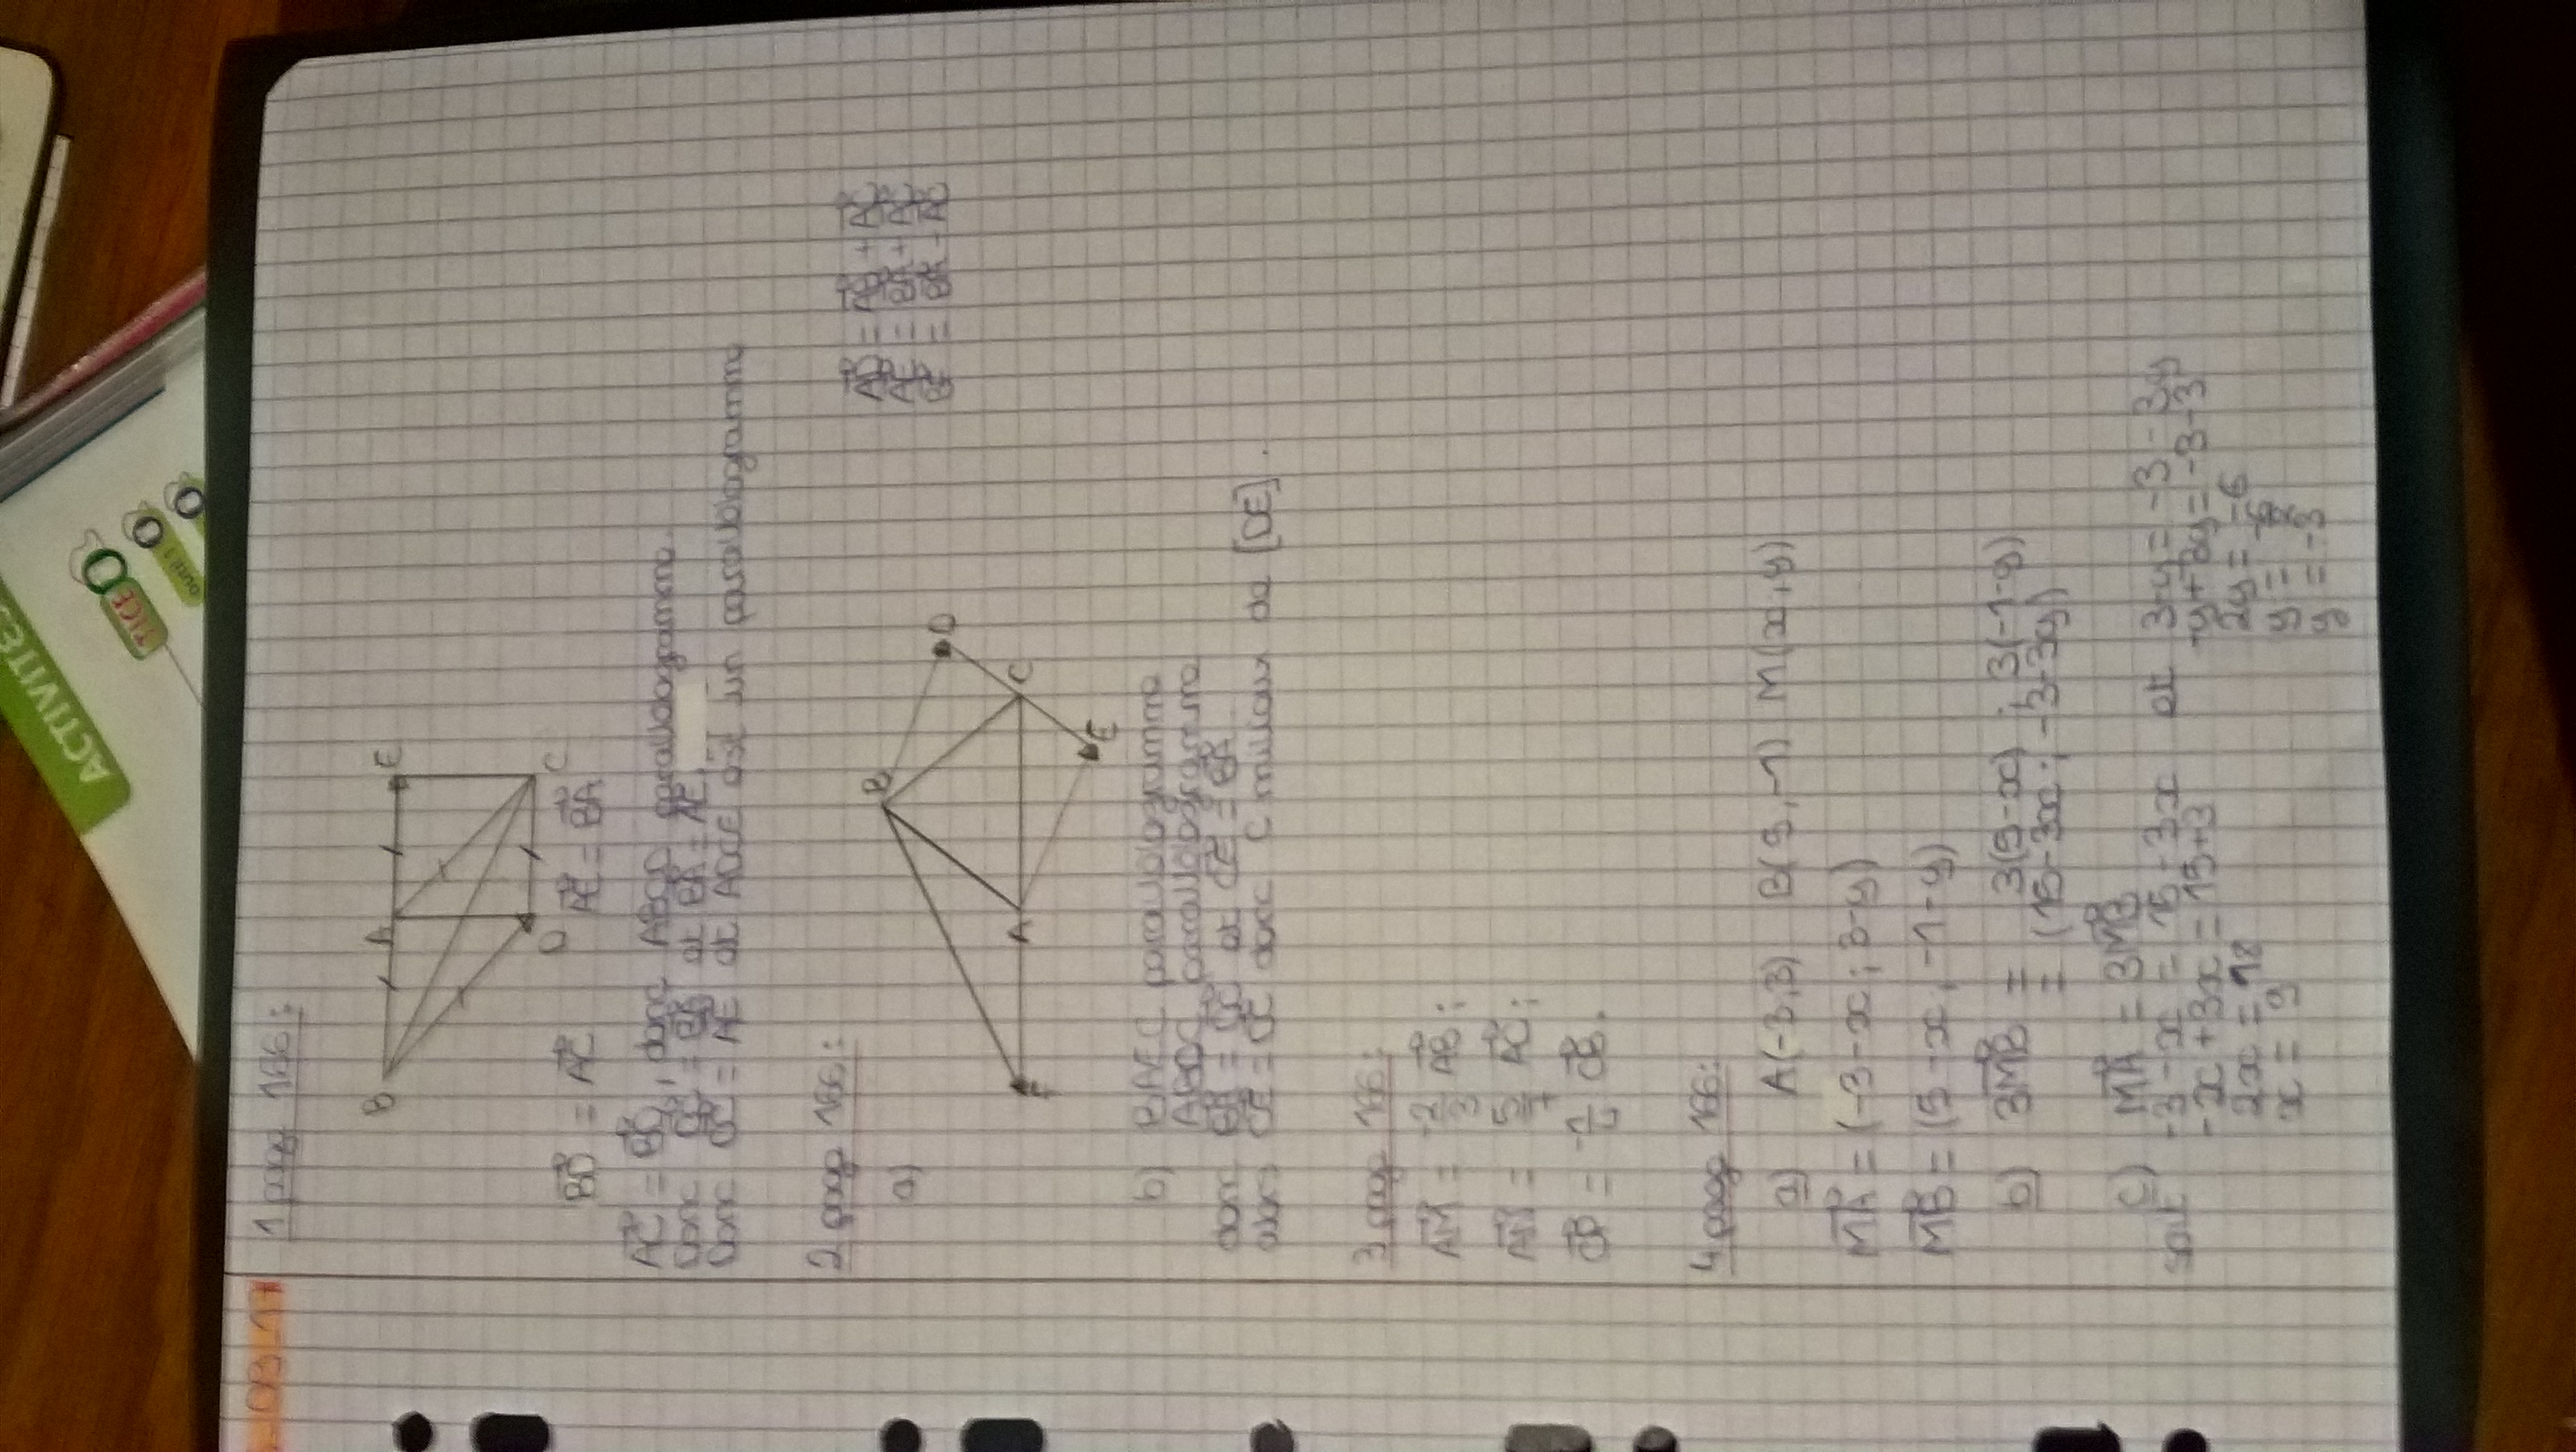 ACTIVITÉS
TICE
outil 1
-09-17
1 page 166:
B A E
D C
BD = AC AE = BA
AC = BD, donc ABCD parallélogramme.
Donc DC = BA et BA = AE.
Donc DC = AE et ADCE est un parallélogramme
2 page 166:
AD = AB + AC
AE = BA + AC
BF = BA - AC
a)
B
D
F A C
E
b) BAEC parallélogramme
ABDC parallélogramme
donc et CE = BA
alors CE = DC donc C milieu de [DE].
3 page 166:
AM = -2/3 AB;
AN = 5/4 AC;
CP = CB.
4 page 166:
a) A(-3,3) B(5,-1) M(x,y)
MA = (-3-x; 3-y)
MB = (5-x, -1-y)
b) 3MB = 3(5-x) ; 3(-1-y)
= (15-3x; -3-3y)
c) MA = 3MB
soit -3-x = 15-3x et 3-y = -3-3y
-x+3x = 15+3 -y+3y = -3-3
2x = 18 2y = -6
x = 9 y = -6/2
y = -3